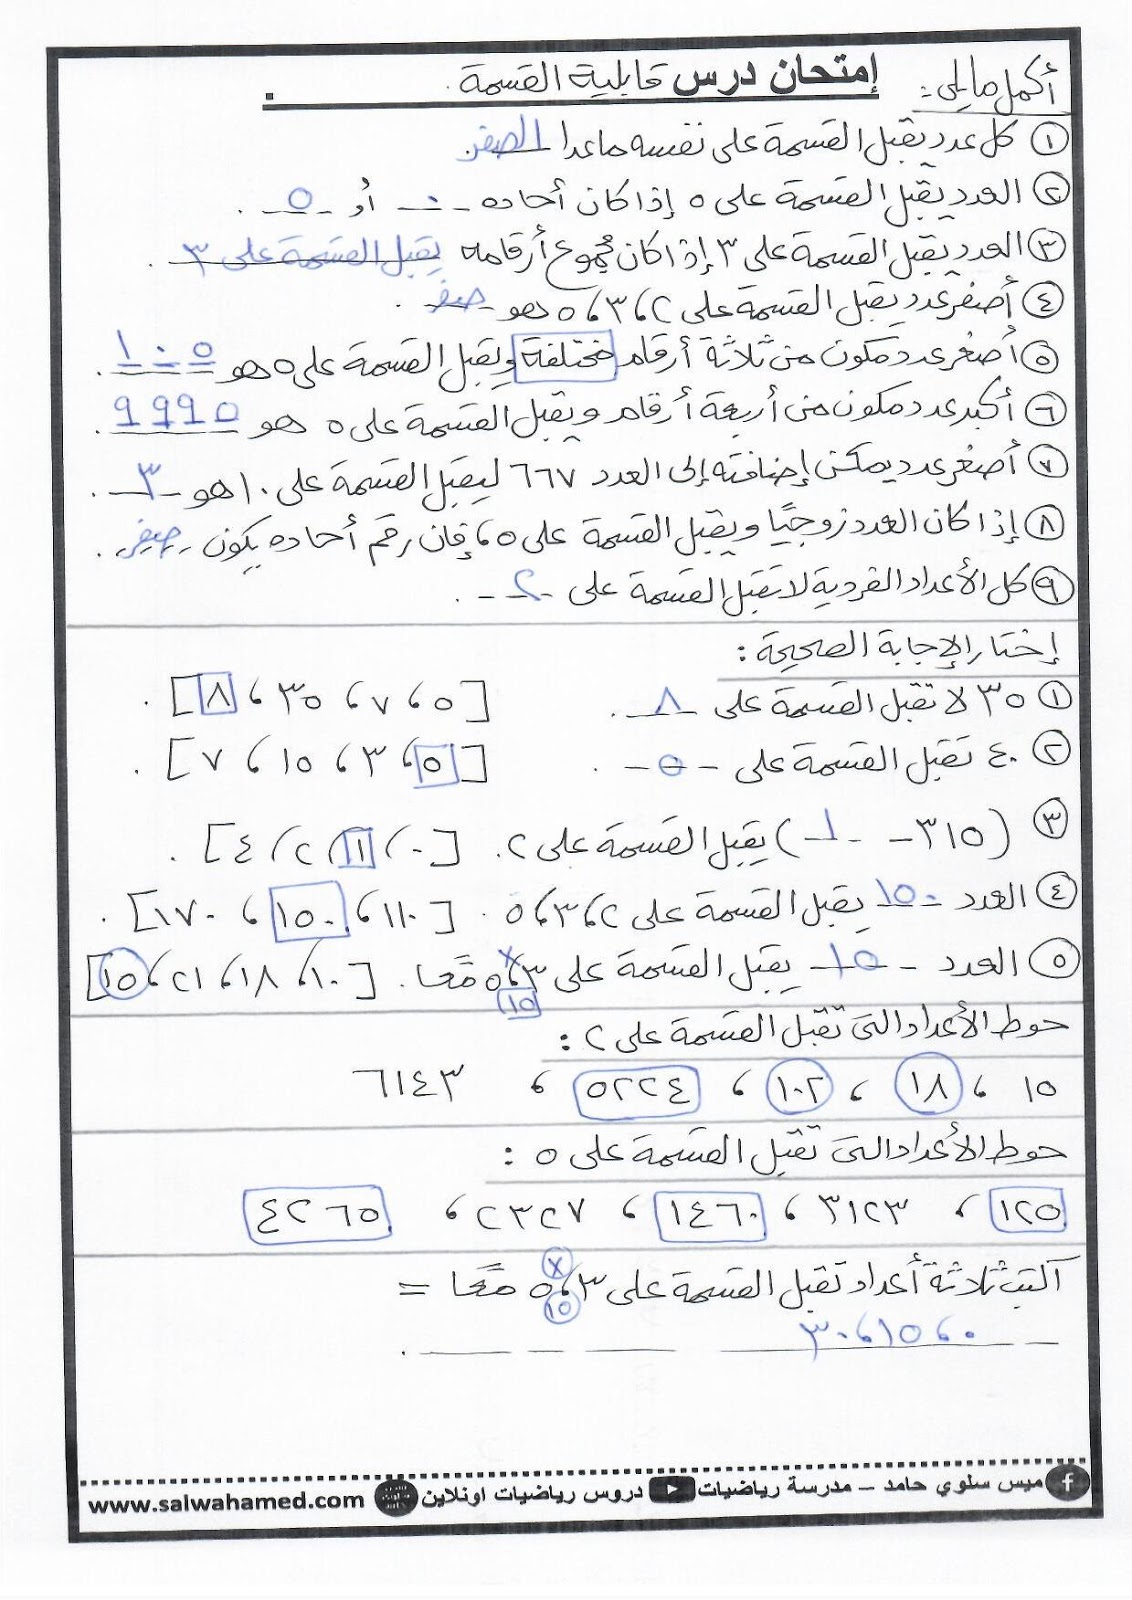 أكمل ما يلى :
إمتحان درس قابلية القسمة .
١ كل عدد يقبل القسمة على نفسه ما عدا الصفر
٢ العدد يقبل القسمة على ٥ إذا كان أحاده ٠ أو ٥ .
٣ العدد يقبل القسمة على ٣ إذا كان مجموع أرقامه يقبل القسمة على ٣ .
٤ أصغر عدد يقبل القسمة على ٢ ، ٣ ، ٥ هو صفر .
٥ أصغر عدد مكون من ثلاثة أرقام مختلفة ويقبل القسمة على ٥ هو ١٠٥ .
٦ أكبر عدد مكون من أربعة أرقام ويقبل القسمة على ٥ هو ٩٩٩٥ .
٧ أصغر عدد يمكن إضافته إلى العدد ٦٦٧ ليقبل القسمة على ١٠ هو ٣ .
٨ إذا كان العدد زوجيًا ويقبل القسمة على ٥ ، فإن رقم أحاده يكون صفر .
٩ كل الأعداد الفردية لا تقبل القسمة على ٢ .
إختار الإجابة الصحيحة :
١ ٣٥ لا تقبل القسمة على ٨ . [ ٥ ، ٧ ، ٣٥ ، ٨ ] .
٢ ٤٠ تقبل القسمة على ٥ . [ ٥ ، ٣ ، ١٥ ، ٧ ] .
٣ ( ٣١٥ - ١ ) يقبل القسمة على ٢ . [ ٠ ، ١ ، ٢ ، ٤ ] .
٤ العدد ١٥٠ يقبل القسمة على ٢ ، ٣ ، ٥ . [ ١١٠ ، ١٥٠ ، ١٧٠ ] .
٥ العدد ١٥ يقبل القسمة على ٣ ، ٥ معًا . [ ١٠ ، ١٨ ، ٢١ ، ١٥ ]
x
١٥
حوط الأعداد التى تقبل القسمة على ٢ :
١٥ ، ١٨ ، ١٠٢ ، ٥٢٢٤ ، ٦١٤٣
حوط الأعداد التى تقبل القسمة على ٥ :
١٢٥ ، ٣١٢٣ ، ١٤٦٠ ، ٢٣٢٧ ، ٤٢٦٥
أكتب ثلاثة أعداد تقبل القسمة على ٣ ، ٥ معًا =
x
١٥
٠ ، ١٥ ، ٣٠
ميس سلوي حامد – مدرسة رياضيات دروس رياضيات اونلاين www.salwahamed.com